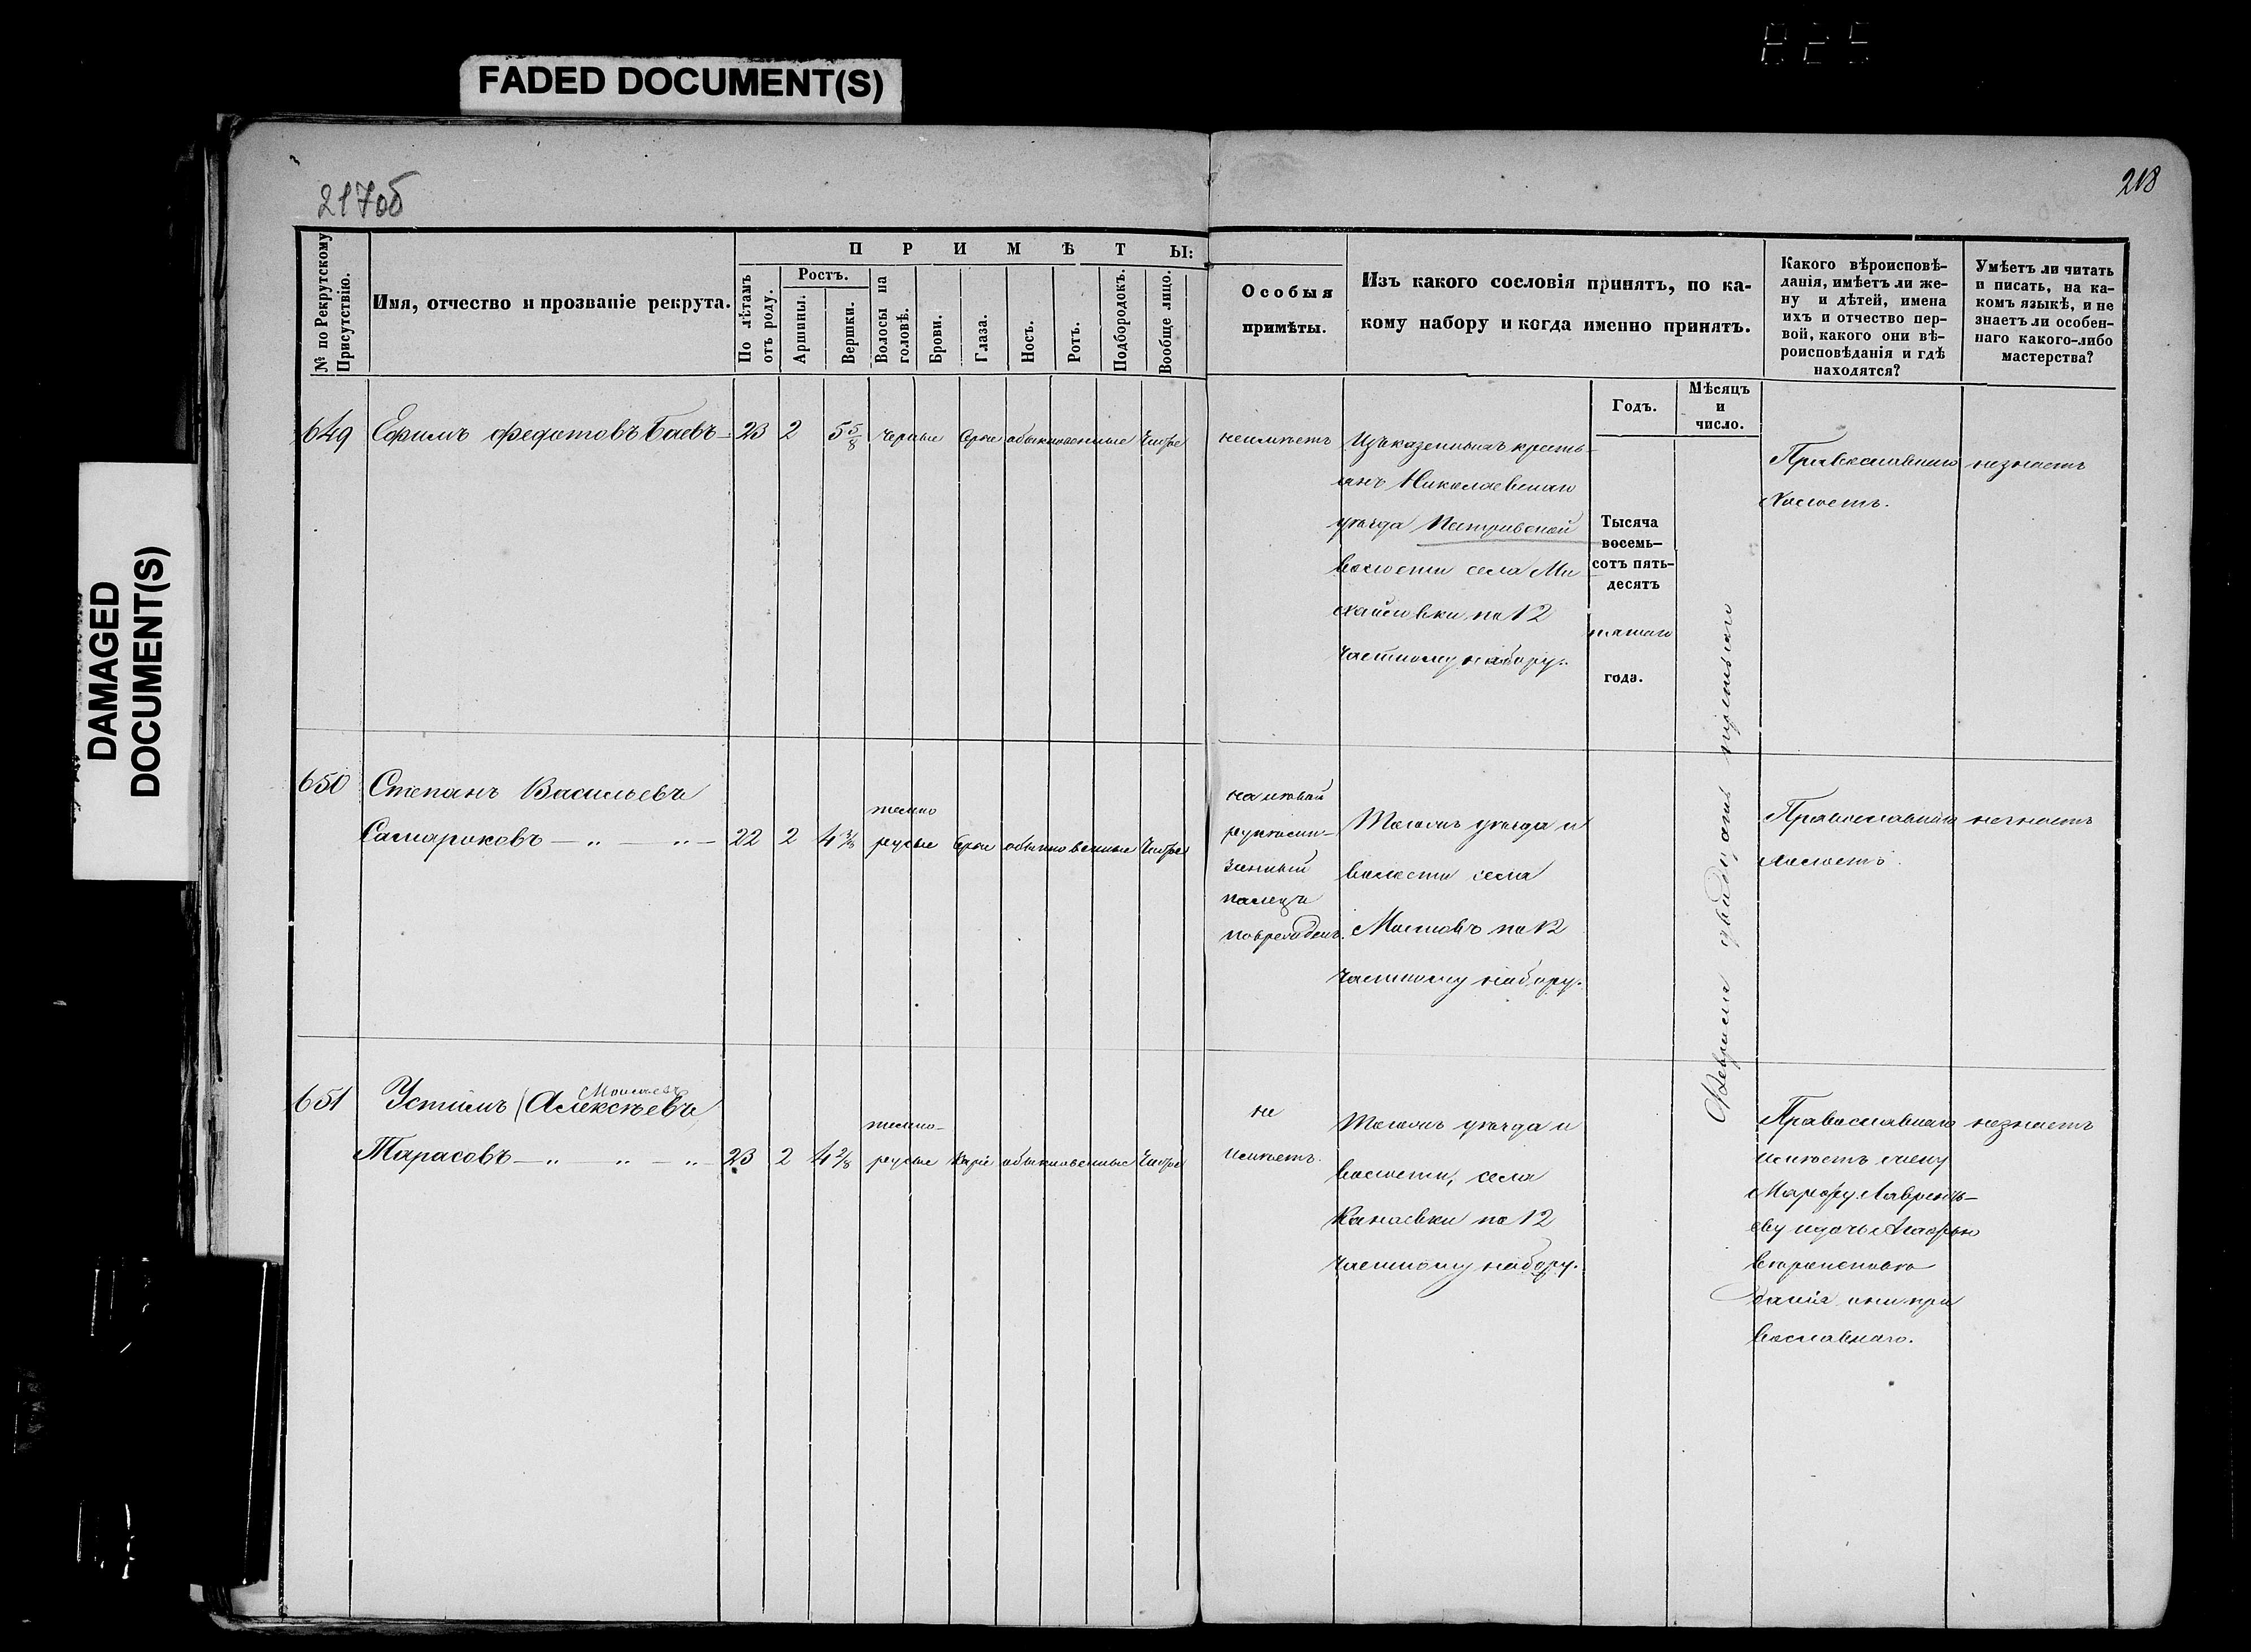 FADED DOCUMENT(S)
DAMAGED
DOCUMENT(S)
217об
218
№ по Рекрутскому Присутствію.
Имя, отчество и прозваніе рекрута.
ПРИМѢТЫ:
По лѣтамъ отъ роду.
Ростъ.
Аршины.
Вершки.
Волосы на головѣ.
Брови.
Глаза.
Носъ.
Ротъ.
Подбородокъ.
Вообще лицо.
Особыя
примѣты.
Изъ какого сословія принятъ, по ка-
кому набору и когда именно принятъ.
Годъ.
Мѣсяцъ
и
число.
Какого вѣроисповѣ-
данія, имѣетъ ли же-
ну и дѣтей, имена
ихъ и отчество пер-
вой, какого они вѣ-
роисповѣданія и гдѣ
находятся?
Умѣетъ ли читать
и писать, на ка-
комъ языкѣ, и не
знаетъ ли особен-
наго какого-либо
мастерства?
649 Ефимъ Федотовъ Баевъ 23 2 5 5/8 черные серые обыкновенные чистое
неимѣетъ
Изъ казенныхъ кресть-
янъ Николаевскаго
уѣзда
волости села Ми
хайловки по 12
частному набору.
Тысяча
восемь-
сотъ пять-
десятъ
пятаго
года.
Февраля двадцать третьяго
Православнаго
холостъ.
незнаетъ
650 Степанъ Васильевъ
Самароковъ — „ — „ — 22 2 4 3/8 темно
русые серые обыкновенные чистое
на лѣвой
рукѣ
палецъ
поврежденъ.
Тогожъ уѣзда и
волости села
по 12
частному набору.
Православнаго
холостъ.
незнаетъ
651 Устимъ (Алексѣевъ
Моисеевъ
Тарасовъ — „ „ — „ — 23 2 4 2/8 темно-
русые каріе обыкновенные чистое
не
имѣетъ.
Тогожъ уѣзда и
волости, села
Канаевки по 12
частному набору.
Православнаго
имѣетъ жену
Марфу Лавренть-
еву и дочь
вѣроисповѣ
данія они пра
вославнаго.
незнаетъ